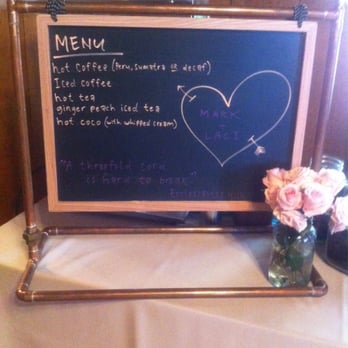 MENU
hot coffee (Peru, Sumatra or decaf)
Iced coffee
hot tea
ginger peach iced tea
hot coco (with whipped cream)
MARK
+
LACI
"A threefold cord
is hard to break"
Ecclesiastes